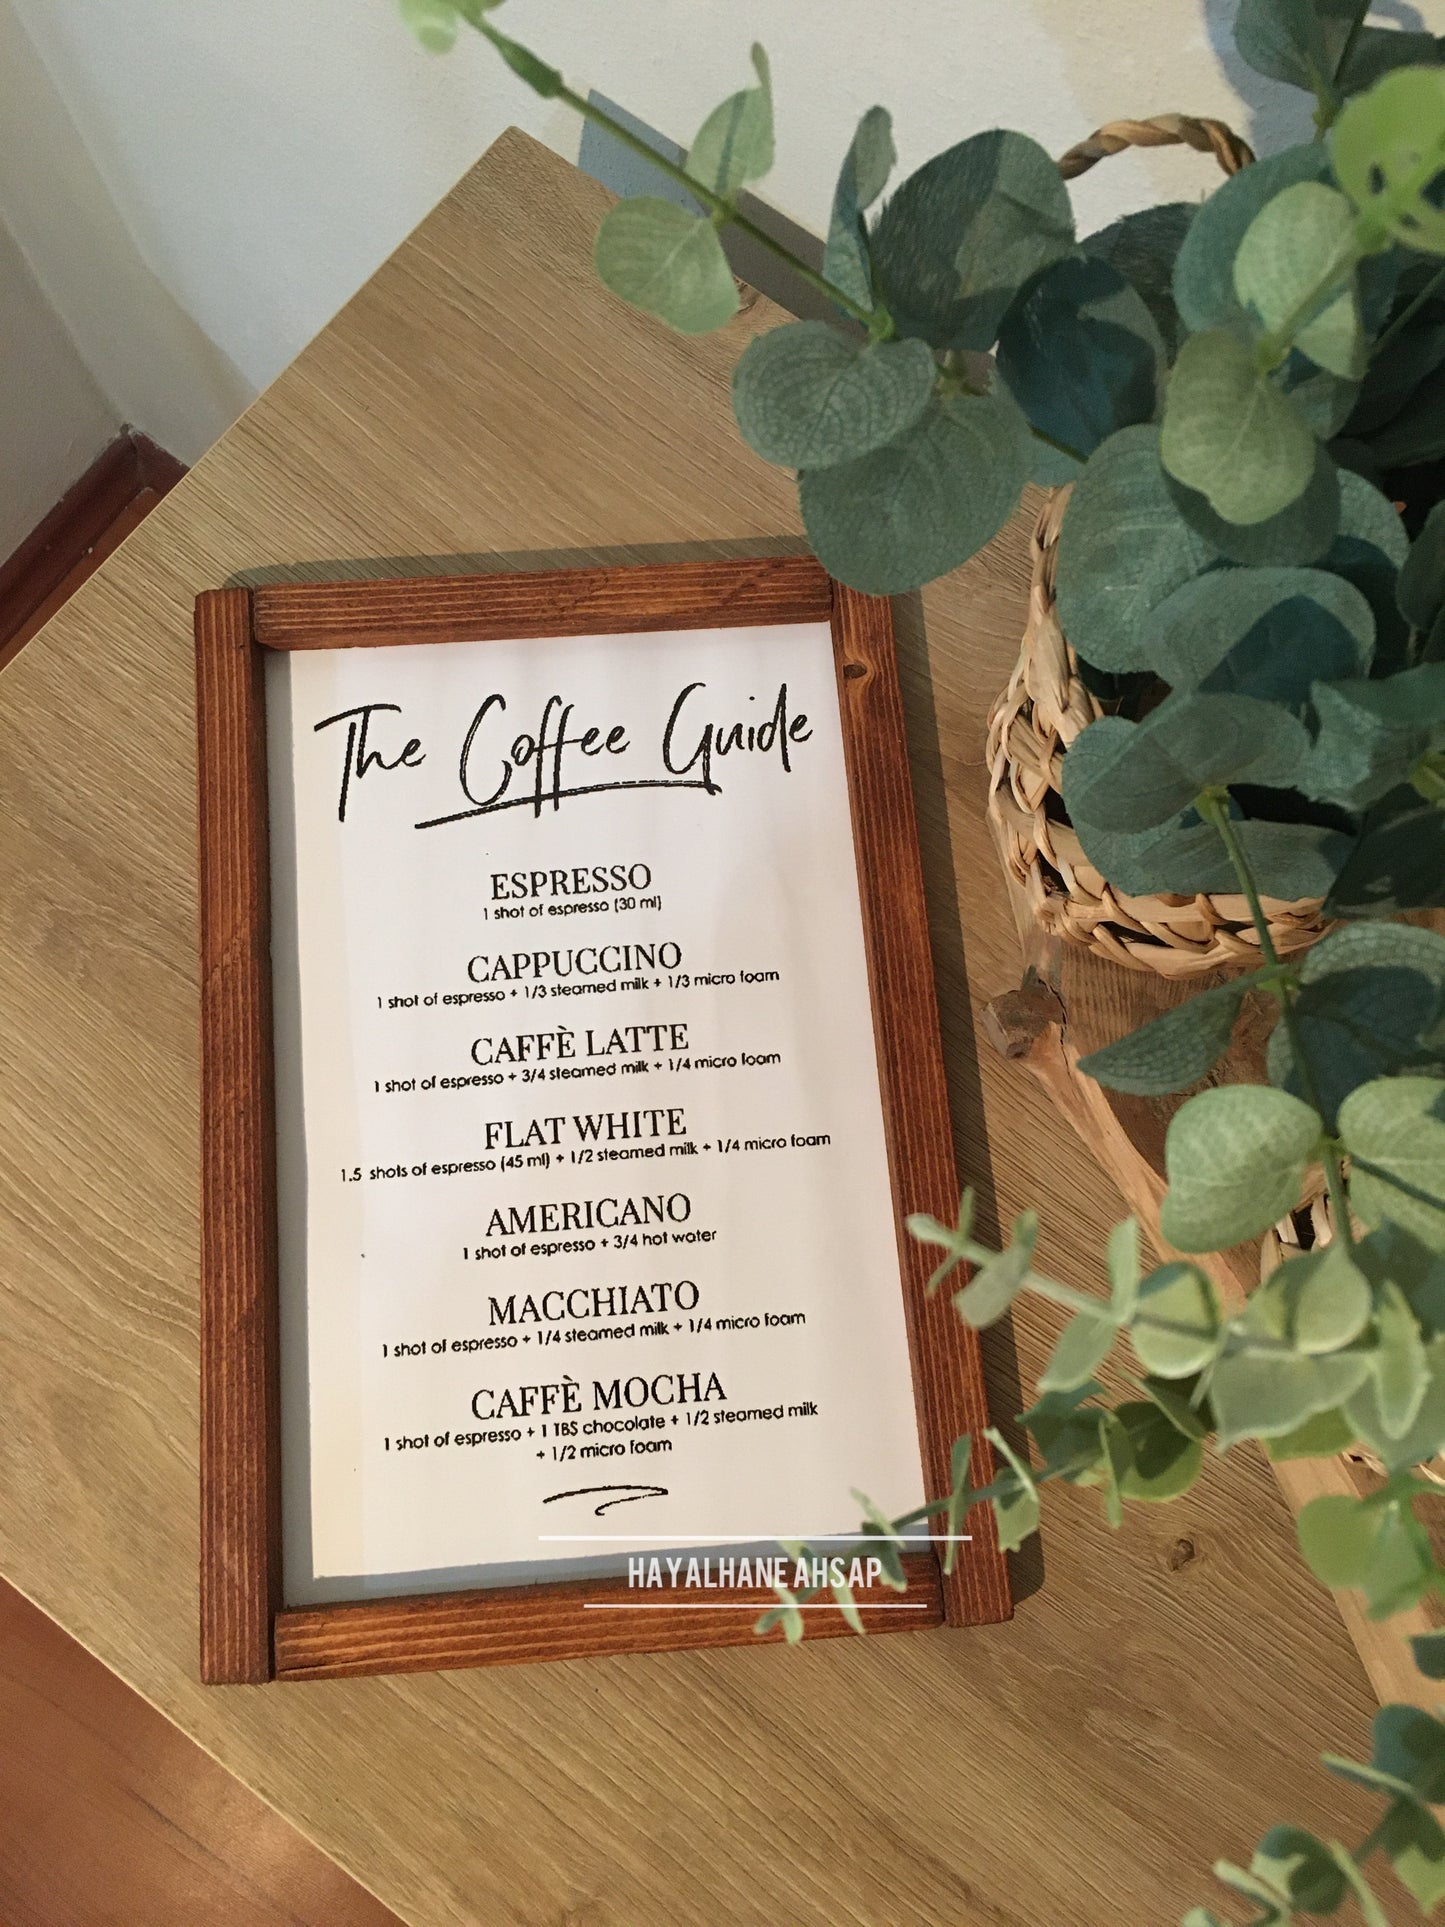 The Coffee Guide
ESPRESSO
1 shot of espresso (30 ml)
CAPPUCCINO
1 shot of espresso + 1/3 steamed milk + 1/3 micro foam
CAFFÈ LATTE
1 shot of espresso + 3/4 steamed milk + 1/4 micro foam
FLAT WHITE
1.5 shots of espresso (45 ml) + 1/2 steamed milk + 1/4 micro foam
AMERICANO
1 shot of espresso + 3/4 hot water
MACCHIATO
1 shot of espresso + 1/4 steamed milk + 1/4 micro foam
CAFFÈ MOCHA
1 shot of espresso + 1 TBS chocolate + 1/2 steamed milk
+ 1/2 micro foam
HAYALHANE AHSAP